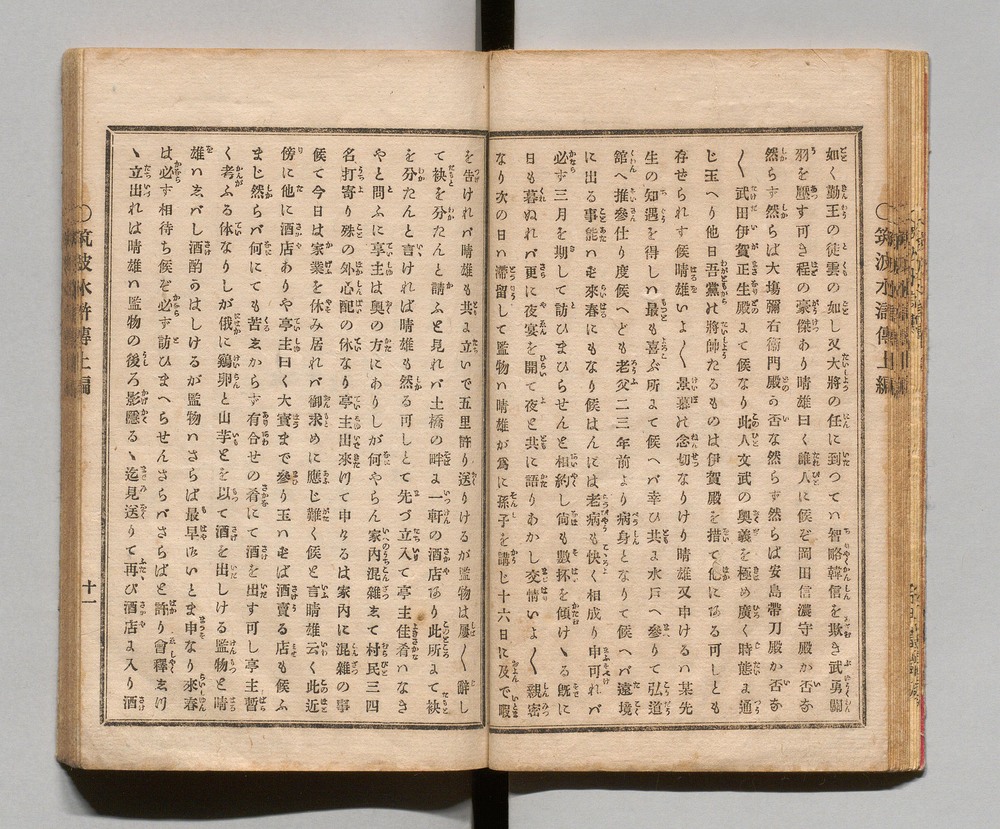 如く勤王の徒雲の如し又大將の任に到つてい智略韓信を欺き武勇關
羽を壓す可き程の豪傑あり晴雄曰く誰人に候ぞ岡田信濃守殿か否な
然らす然らば大塲彌右衛門殿か否な然らす然らば安島帶刀殿か否な
〱武田伊賀正生殿まて候なり此人文武の奧義を極め廣く時態ょ通
じ玉へり他日吾黨は將帥たるものは伊賀殿を措て他にある可しとも
存せられす候晴雄いよ〱景慕は念切なりけり晴雄又申けるハ某先
生の知遇を得しハ最も喜ぶ所まて候へバ幸ひ共ょ水戸へ參りて弘道
館へ推參仕り度候へども老父二三年前より病身となりて候へバ遠境
に出る事能ハも來春にもなり候はんには老病も快く相成り申可れバ
必す三月を期して訪ひまひらせんと相約し尙も數抔を傾けゝる既に
日も暮ぬれバ更に夜宴を開て夜と共に語りあかし交情いよ〱親密
なり次の日ハ滯留して監物ハ晴雄が爲に孫子を講じ十六日に及で暇
を告けれバ晴雄も共ょ立いで五里許り送りけるが監物は屢〱辭し
て袂を分たんと請ふと見れバ土橋の畔ょ一軒の酒店あり此所まて袂
を分たんと言ければ晴雄も然る可しとて先づ立入て亭主佳肴ハなき
やと問ふに亭主は奧の方にありしが何やらん家内混雜ゑて村民三四
名打寄り殊の外心配の体なり亭主出來りて申けるは家内に混雜の事
候て今日は家業を休み居れバ御求めに應じ難く候と言晴雄云く此近
傍に他に酒店ありや亭主曰く大寳まで參り玉ハもば酒賣る店も候ふ
まじ然らバ何にても苦ゑからす有合せの肴にて酒を出す可し亭主暫
く考ふる体なりしが俄に鷄卵と山芋とを以て酒を出しける監物と晴
雄ハゑバし酒酌かはしけるが監物ハさらば最早いいとま申なり來春
は必す相待ち候ぞ必ず訪ひまへらせんさらバさらばと許り會釋ゑり
ゝ立出れは晴雄ハ監物の後ろ影隱るゝ迄見送りて再び酒店ょ入り酒
〇筑波水滸傳上編
〇筑波水滸傳上編
十一